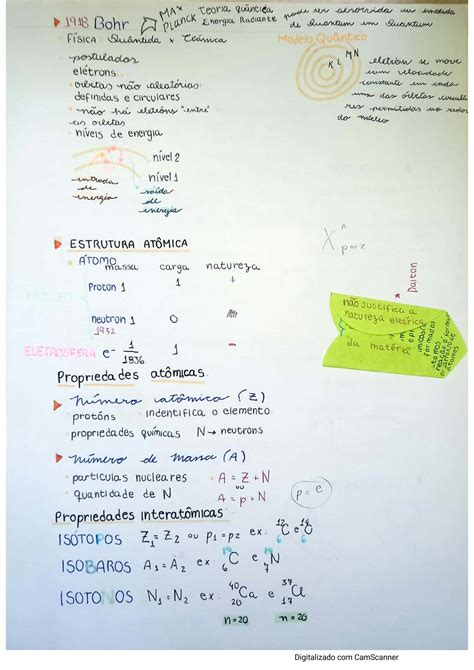 1918 Bohr
MAX PLANCK Teoria quântica Energia Radiante
pode ser absorvida ou emitida de Quantum em Quantum
FÍSICA Quântida + Clássica
Modelo Quântico
K L M N
eletron se move com velocidade constante em cada uma das órbitas circulares permitidas ao redor do núcleo
- postulados
elétrons...
• orbitas não aleatórias:
definidas e circulares
• não há eletróns "entre"
as orbitas
• níveis de energia
nível 2
nível 1
entrada de energia
saída de energia
ESTRUTURA ATÔMICA
ÁTOMO
massa carga natureza
Proton 1 1 +
neutron 1 0
1932
ELETROSFERA e- 1/1836 1 -
X A p=z
* Dalton
não justifica a
natureza eletrica
da matéria
Propriedades atômicas.
Número atômico (Z)
• protóns • indentifica o elemento
• propriedades químicas N → neutrons
Número de massa (A)
• particulas nucleares • A = Z + N
ou
• quantidade de N A = p + N
p = e
Propriedades interatômicas
ISÓTOPOS Z1 = Z2 ou p1 = p2 ex: 12 6 C e 14 6 C
ISOBAROS A1 = A2 ex: 14 6 C e 14 7 N
ISOTONOS N1 = N2 ex: 40 20 Ca e 37 17 Cl
n=20 n=20
Digitalizado com CamScanner